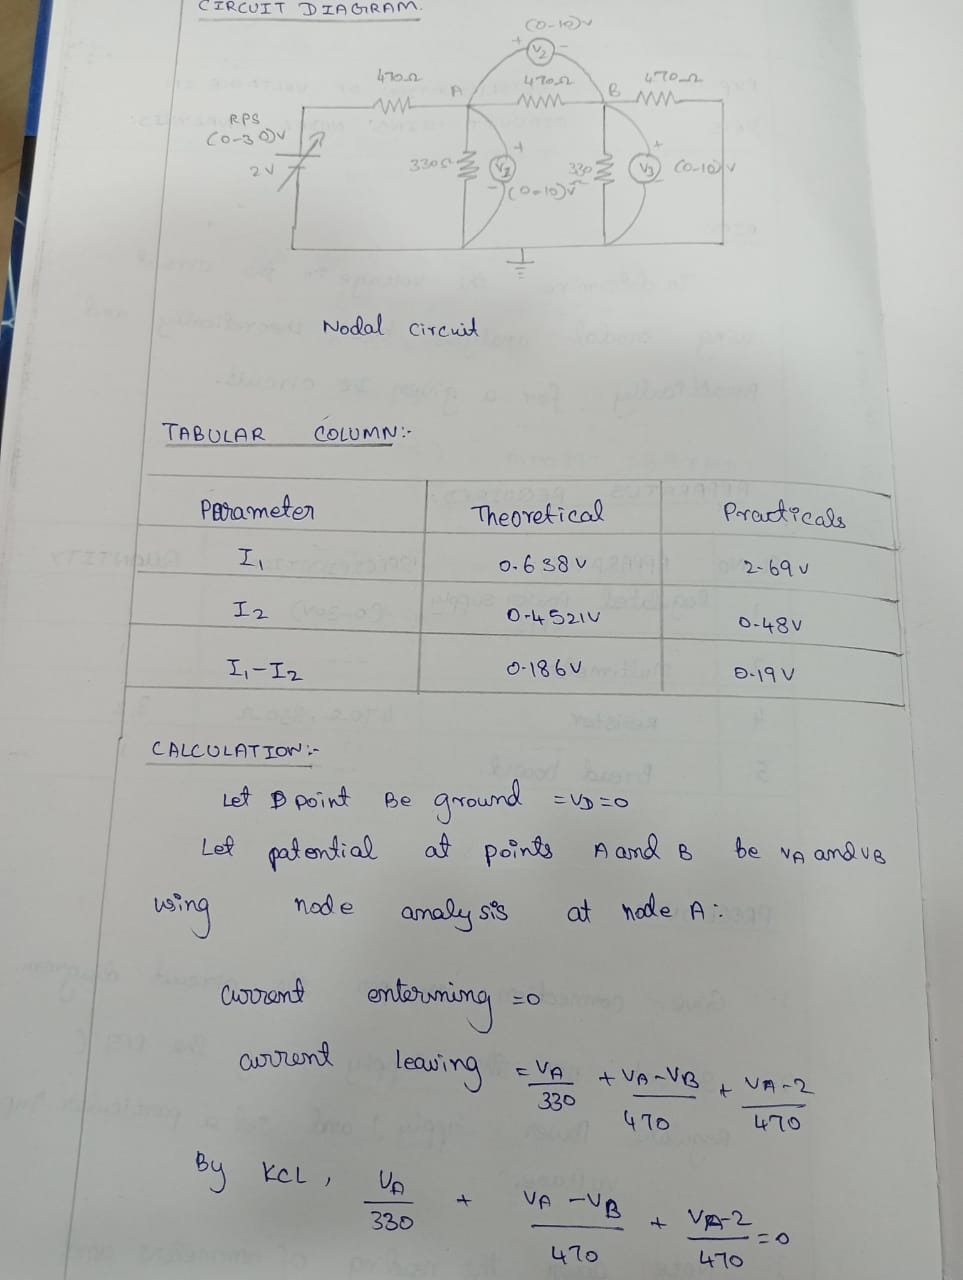 CIRCUIT DIAGRAM.
(0-10)v
+ V2 -
470Ω A 470Ω B 470Ω
RPS
(0-30)v
2V
330Ω + V1 - (0-10)v
330 + V3 - (0-10)v
Nodal circuit
TABULAR COLUMN:-
Parameter Theoretical Practicals
I1 0.638V 2.69V
I2 0.4521V 0.48V
I1-I2 0.186V 0.19V
CALCULATION:-
Let D point Be ground = VD=0
Let patential at points A and B be VA and VB
using node analysis at node A:
current enterining =0
current leaving = VA/330 + VA-VB/470 + VA-2/470
By KCL, VA/330 + VA-VB/470 + VA-2/470 =0